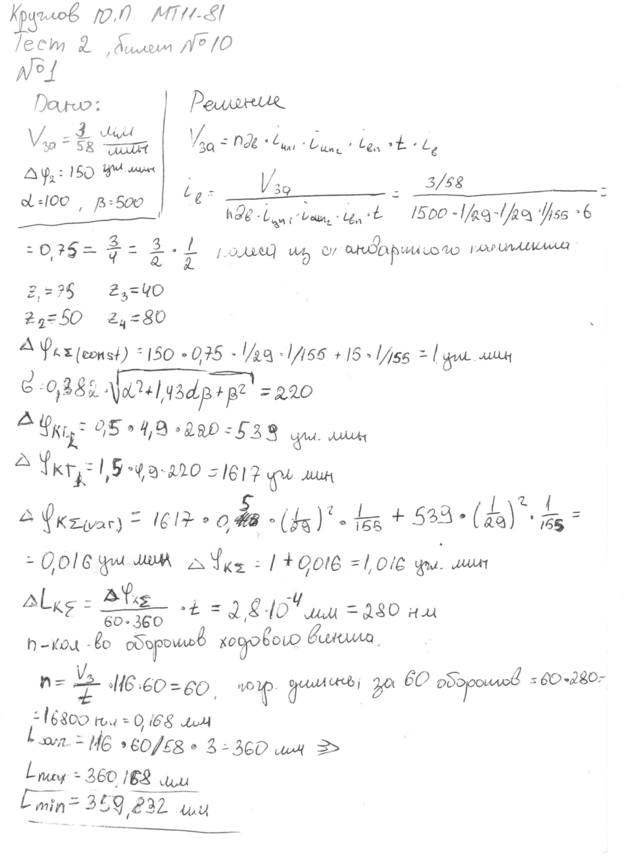 Круглов Ю.П. МТ11-81
Тест 2, билет №10
№1
Дано:
Vза = 3/58 мм/мин
Δφ₂ = 150 угл мин
α=100, β=500
Решение
Vза = nдв · iцп1 · iцп2 · iвп · t · iв
iв = Vза / (nдв · iцп1 · iцп2 · iвп · t) = (3/58) / (1500 · 1/29 · 1/29 · 1/155 · 6) =
= 0,75 = 3/4 = 3/2 · 1/2 колеса из стандартного комплекта
z₁=75 z₃=40
z₂=50 z₄=80
ΔφkΣ(const) = 150 · 0,75 · 1/29 · 1/155 + 15 · 1/155 = 1 угл. мин
σ = 0,382 · √(α²+1,43αβ+β²) = 220
= 0,5 · 4,9 · 220 = 539 угл. мин
= 1,5 · 4,9 · 220 = 1617 угл мин
ΔφkΣ(var) = 1617 · 0,5 · (1/29)² · 1/155 + 539 · (1/29)² · 1/155 =
= 0,016 угл мин ΔφkΣ = 1 + 0,016 = 1,016 угл. мин
ΔLkΣ = ΔφkΣ/(60·360) · t = 2,8·10⁻⁴ мм = 280 нм
n-кол-во оборотов ходового винта.
n = Vз/t · 116·60 = 60, погр. длины за 60 оборотов = 60·280=
= 16800 нм = 0,168 мм
Lзаг = 116 · 60/58 · 3 = 360 мм ⇒
Lmax = 360,168 мм
Lmin = 359,832 мм